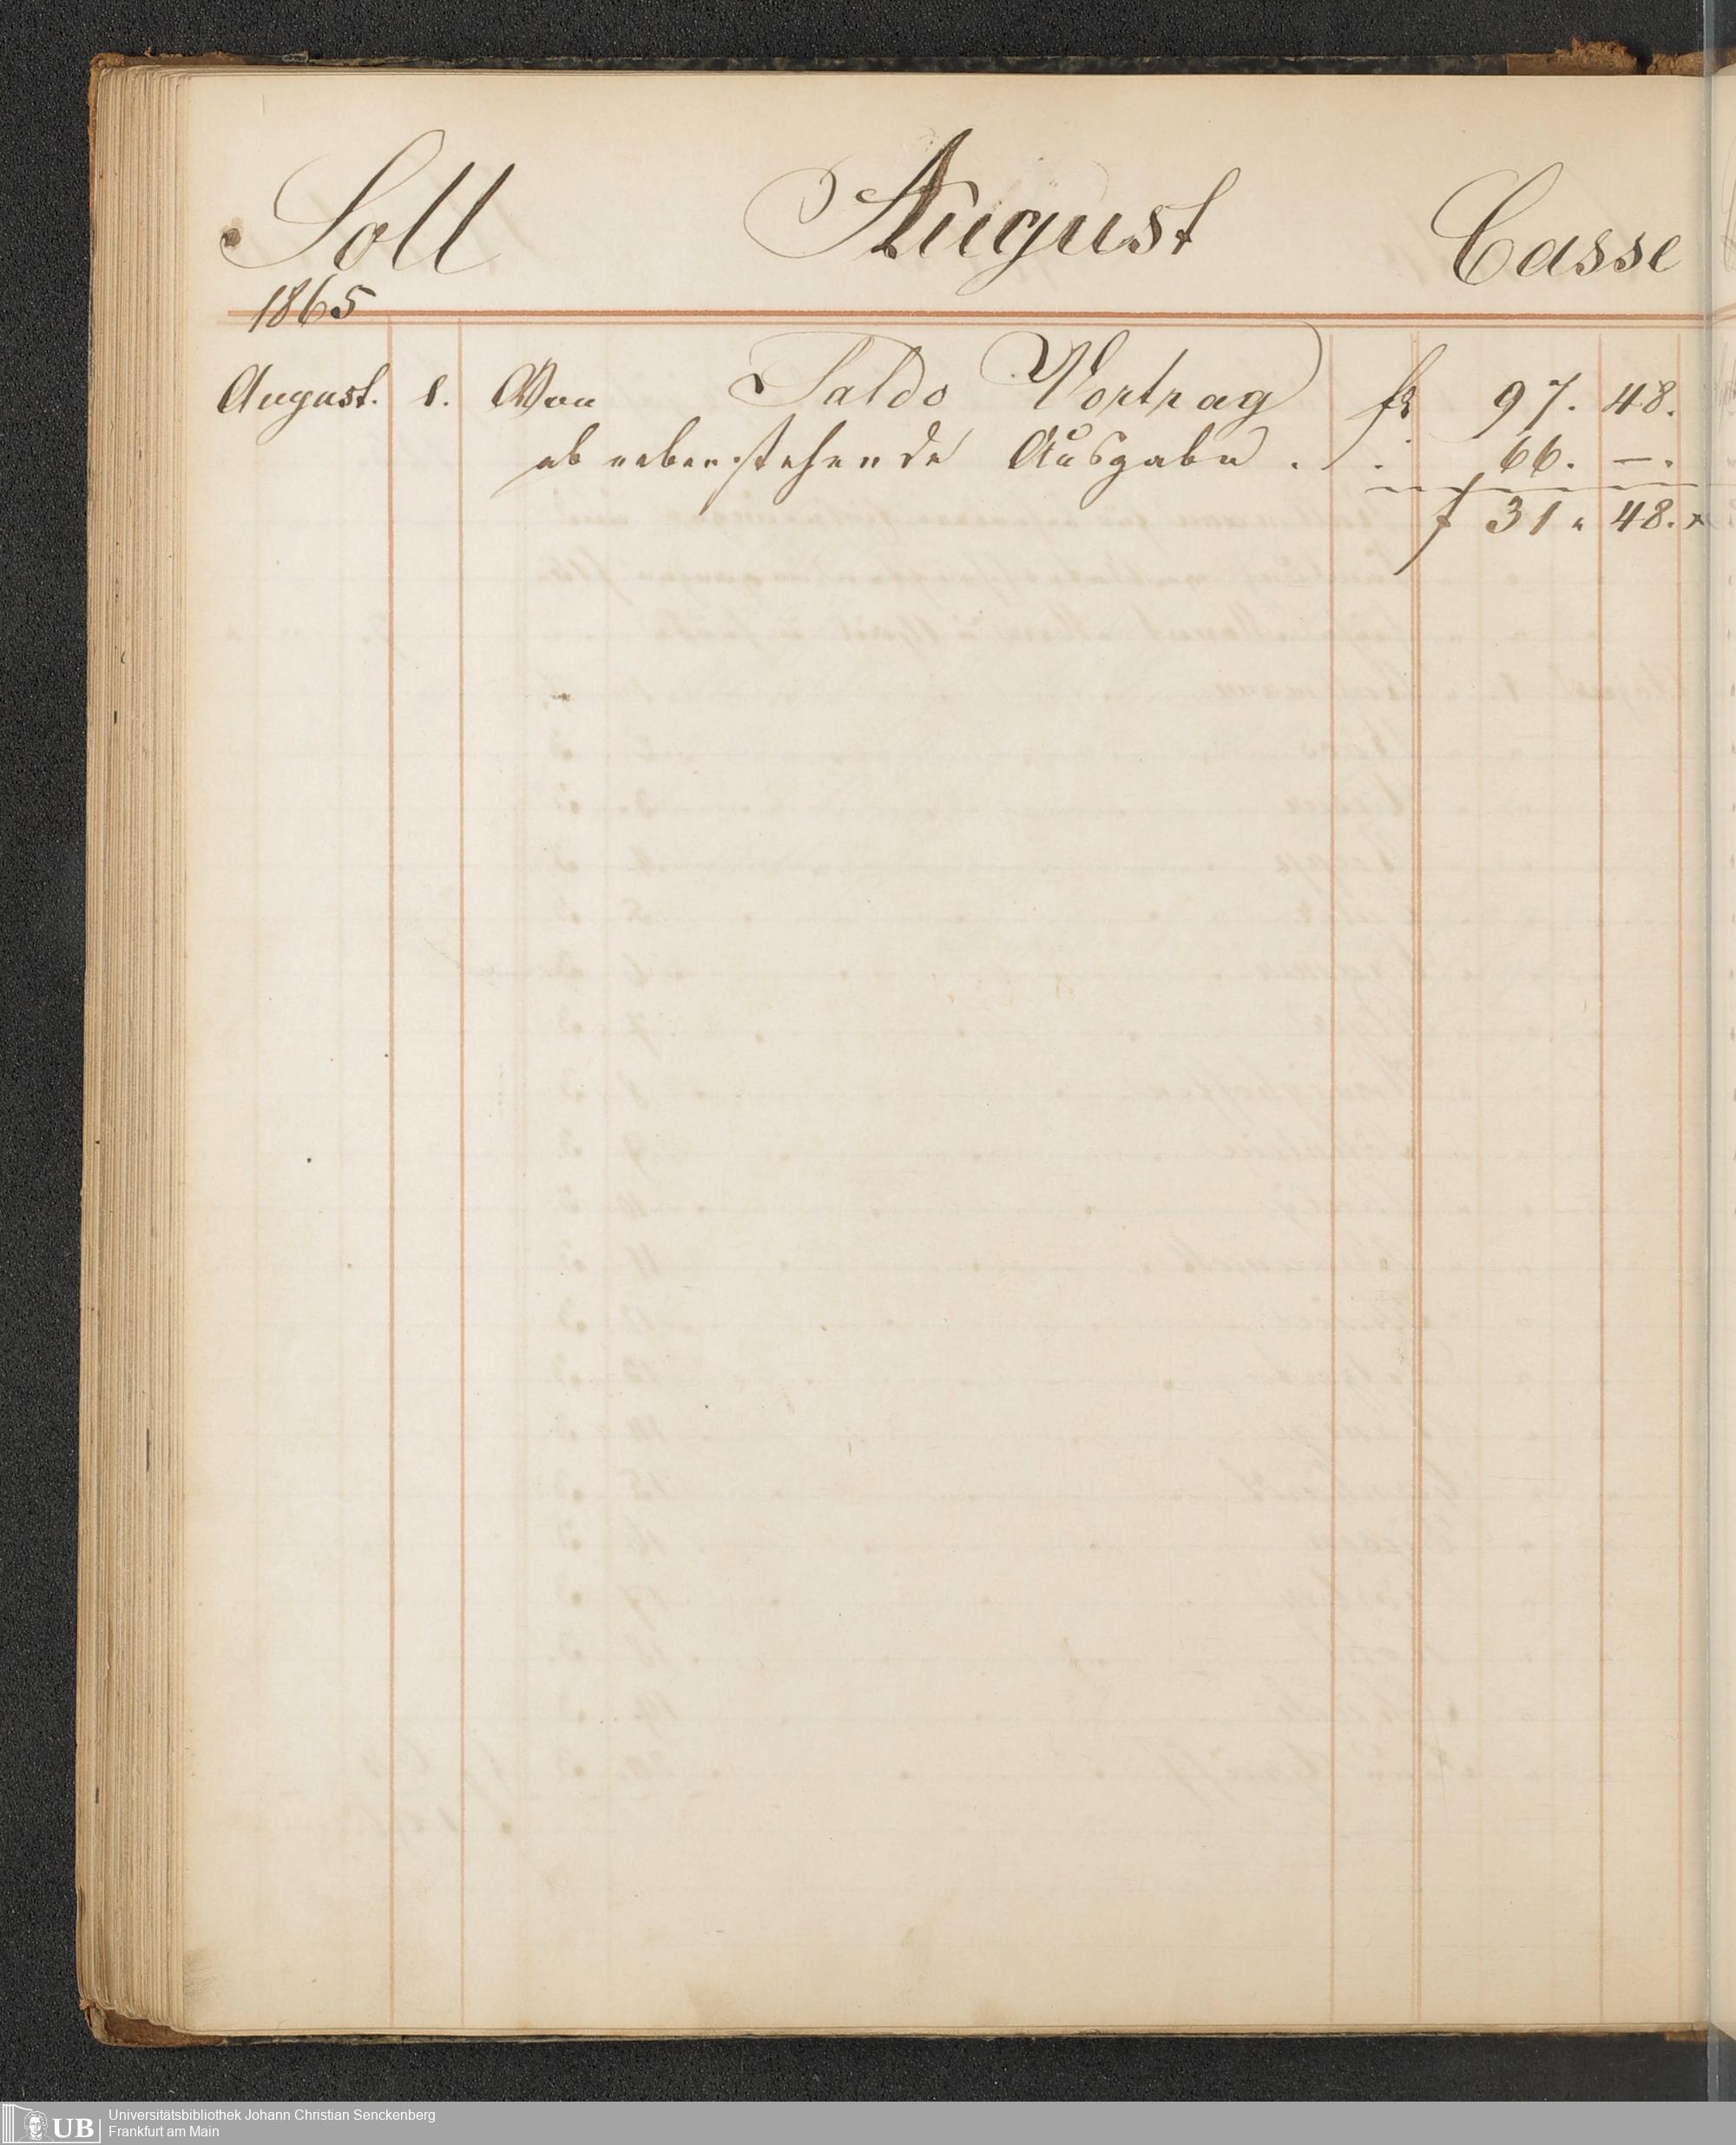 Soll August Casse
1865
August. 1. Von Saldo Vortrag f 97. 48.
ab nebenstehende Ausgabe . . 66. —.
f 31 " 48. x
UB Universitätsbibliothek Johann Christian Senckenberg
Frankfurt am Main